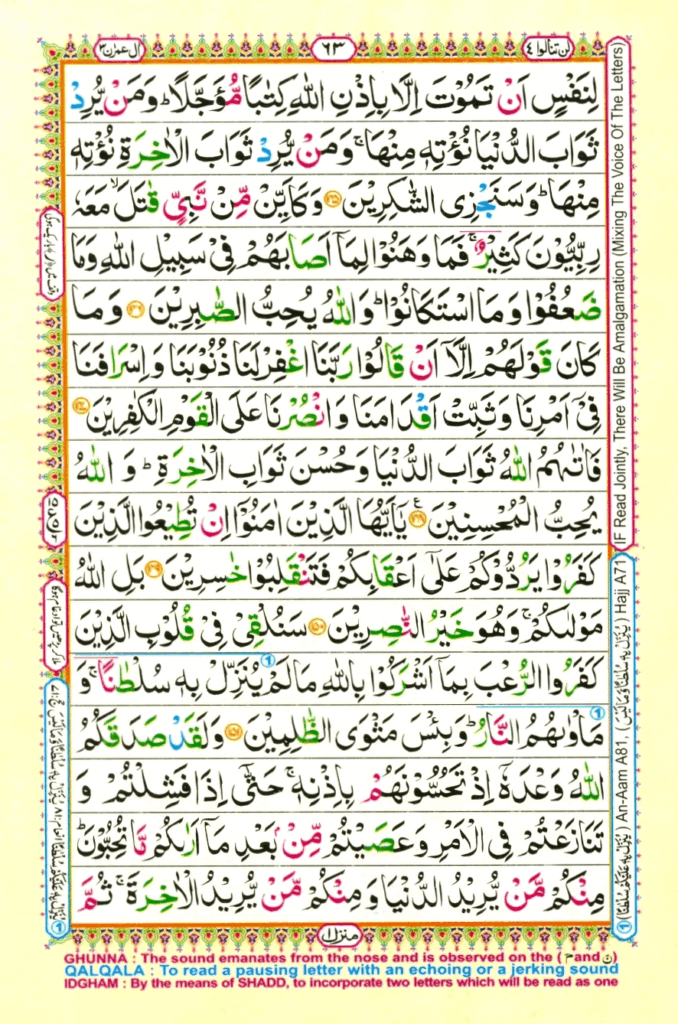 لن تنالوا ٤
٦٣
ال عمرٰن ٣
لِنَفْسٍ اَنْ تَمُوْتَ اِلَّا بِاِذْنِ اللّٰهِ كِتٰبًا مُّؤَجَّلًا ؕ وَمَنْ يُّرِدْ
ثَوَابَ الدُّنْيَا نُؤْتِهٖ مِنْهَا ۚ وَمَنْ يُّرِدْ ثَوَابَ الْاٰخِرَةِ نُؤْتِهٖ
مِنْهَا ؕ وَسَنَجْزِى الشّٰكِرِيْنَ ۝۱۴۵ وَكَاَيِّنْ مِّنْ نَّبِيٍّ قٰتَلَ ۙ مَعَهٗ
رِبِّيُّوْنَ كَثِيْرٌ ۚ فَمَا وَهَنُوْا لِمَاۤ اَصَابَهُمْ فِىْ سَبِيْلِ اللّٰهِ وَمَا
ضَعُفُوْا وَمَا اسْتَكَانُوْا ؕ وَاللّٰهُ يُحِبُّ الصّٰبِرِيْنَ ۝۱۴۶ وَمَا
كَانَ قَوْلَهُمْ اِلَّاۤ اَنْ قَالُوْا رَبَّنَا اغْفِرْ لَنَا ذُنُوْبَنَا وَاِسْرَافَنَا
فِىْۤ اَمْرِنَا وَثَبِّتْ اَقْدَامَنَا وَانْصُرْنَا عَلَى الْقَوْمِ الْكٰفِرِيْنَ ۝۱۴۷
فَاٰتٰىهُمُ اللّٰهُ ثَوَابَ الدُّنْيَا وَحُسْنَ ثَوَابِ الْاٰخِرَةِ ؕ وَ اللّٰهُ
يُحِبُّ الْمُحْسِنِيْنَ ۝۱۴۸ ع يٰۤاَيُّهَا الَّذِيْنَ اٰمَنُوْۤا اِنْ تُطِيْعُوا الَّذِيْنَ
كَفَرُوْا يَرُدُّوْكُمْ عَلٰٓى اَعْقَابِكُمْ فَتَنْقَلِبُوْا خٰسِرِيْنَ ۝۱۴۹ بَلِ اللّٰهُ
مَوْلٰىكُمْ ۚ وَهُوَ خَيْرُ النّٰصِرِيْنَ ۝۱۵۰ سَنُلْقِىْ فِىْ قُلُوْبِ الَّذِيْنَ
كَفَرُوا الرُّعْبَ بِمَاۤ اَشْرَكُوْا بِاللّٰهِ مَا لَمْ يُنَزِّلْ بِهٖ سُلْطٰنًا ۚ وَ
مَاْوٰىهُمُ النَّارُ ؕ وَبِئْسَ مَثْوَى الظّٰلِمِيْنَ ۝۱۵۱ وَلَقَدْ صَدَقَكُمُ
اللّٰهُ وَعْدَهٗۤ اِذْ تَحُسُّوْنَهُمْ بِاِذْنِهٖ ۚ حَتّٰۤى اِذَا فَشِلْتُمْ وَ
تَنَازَعْتُمْ فِى الْاَمْرِ وَعَصَيْتُمْ مِّنْۢ بَعْدِ مَاۤ اَرٰىكُمْ مَّا تُحِبُّوْنَ ؕ
مِنْكُمْ مَّنْ يُّرِيْدُ الدُّنْيَا وَمِنْكُمْ مَّنْ يُّرِيْدُ الْاٰخِرَةَ ۚ ثُمَّ
منزل ۱
IF Read Jointly, There Will Be Amalgamation (Mixing The Voice Of The Letters)
① (يُنَزِّلْ بِهٖ عَلَيْكُمْ سُلْطٰنًا) An-Aam A81. (يُنَزِّلْ بِهٖ سُلْطٰنًا وَّمَا لَيْسَ) Hajj A71
GHUNNA : The sound emanates from the nose and is observed on the (م and ن)
QALQALA : To read a pausing letter with an echoing or a jerking sound
IDGHAM : By the means of SHADD, to incorporate two letters which will be read as one